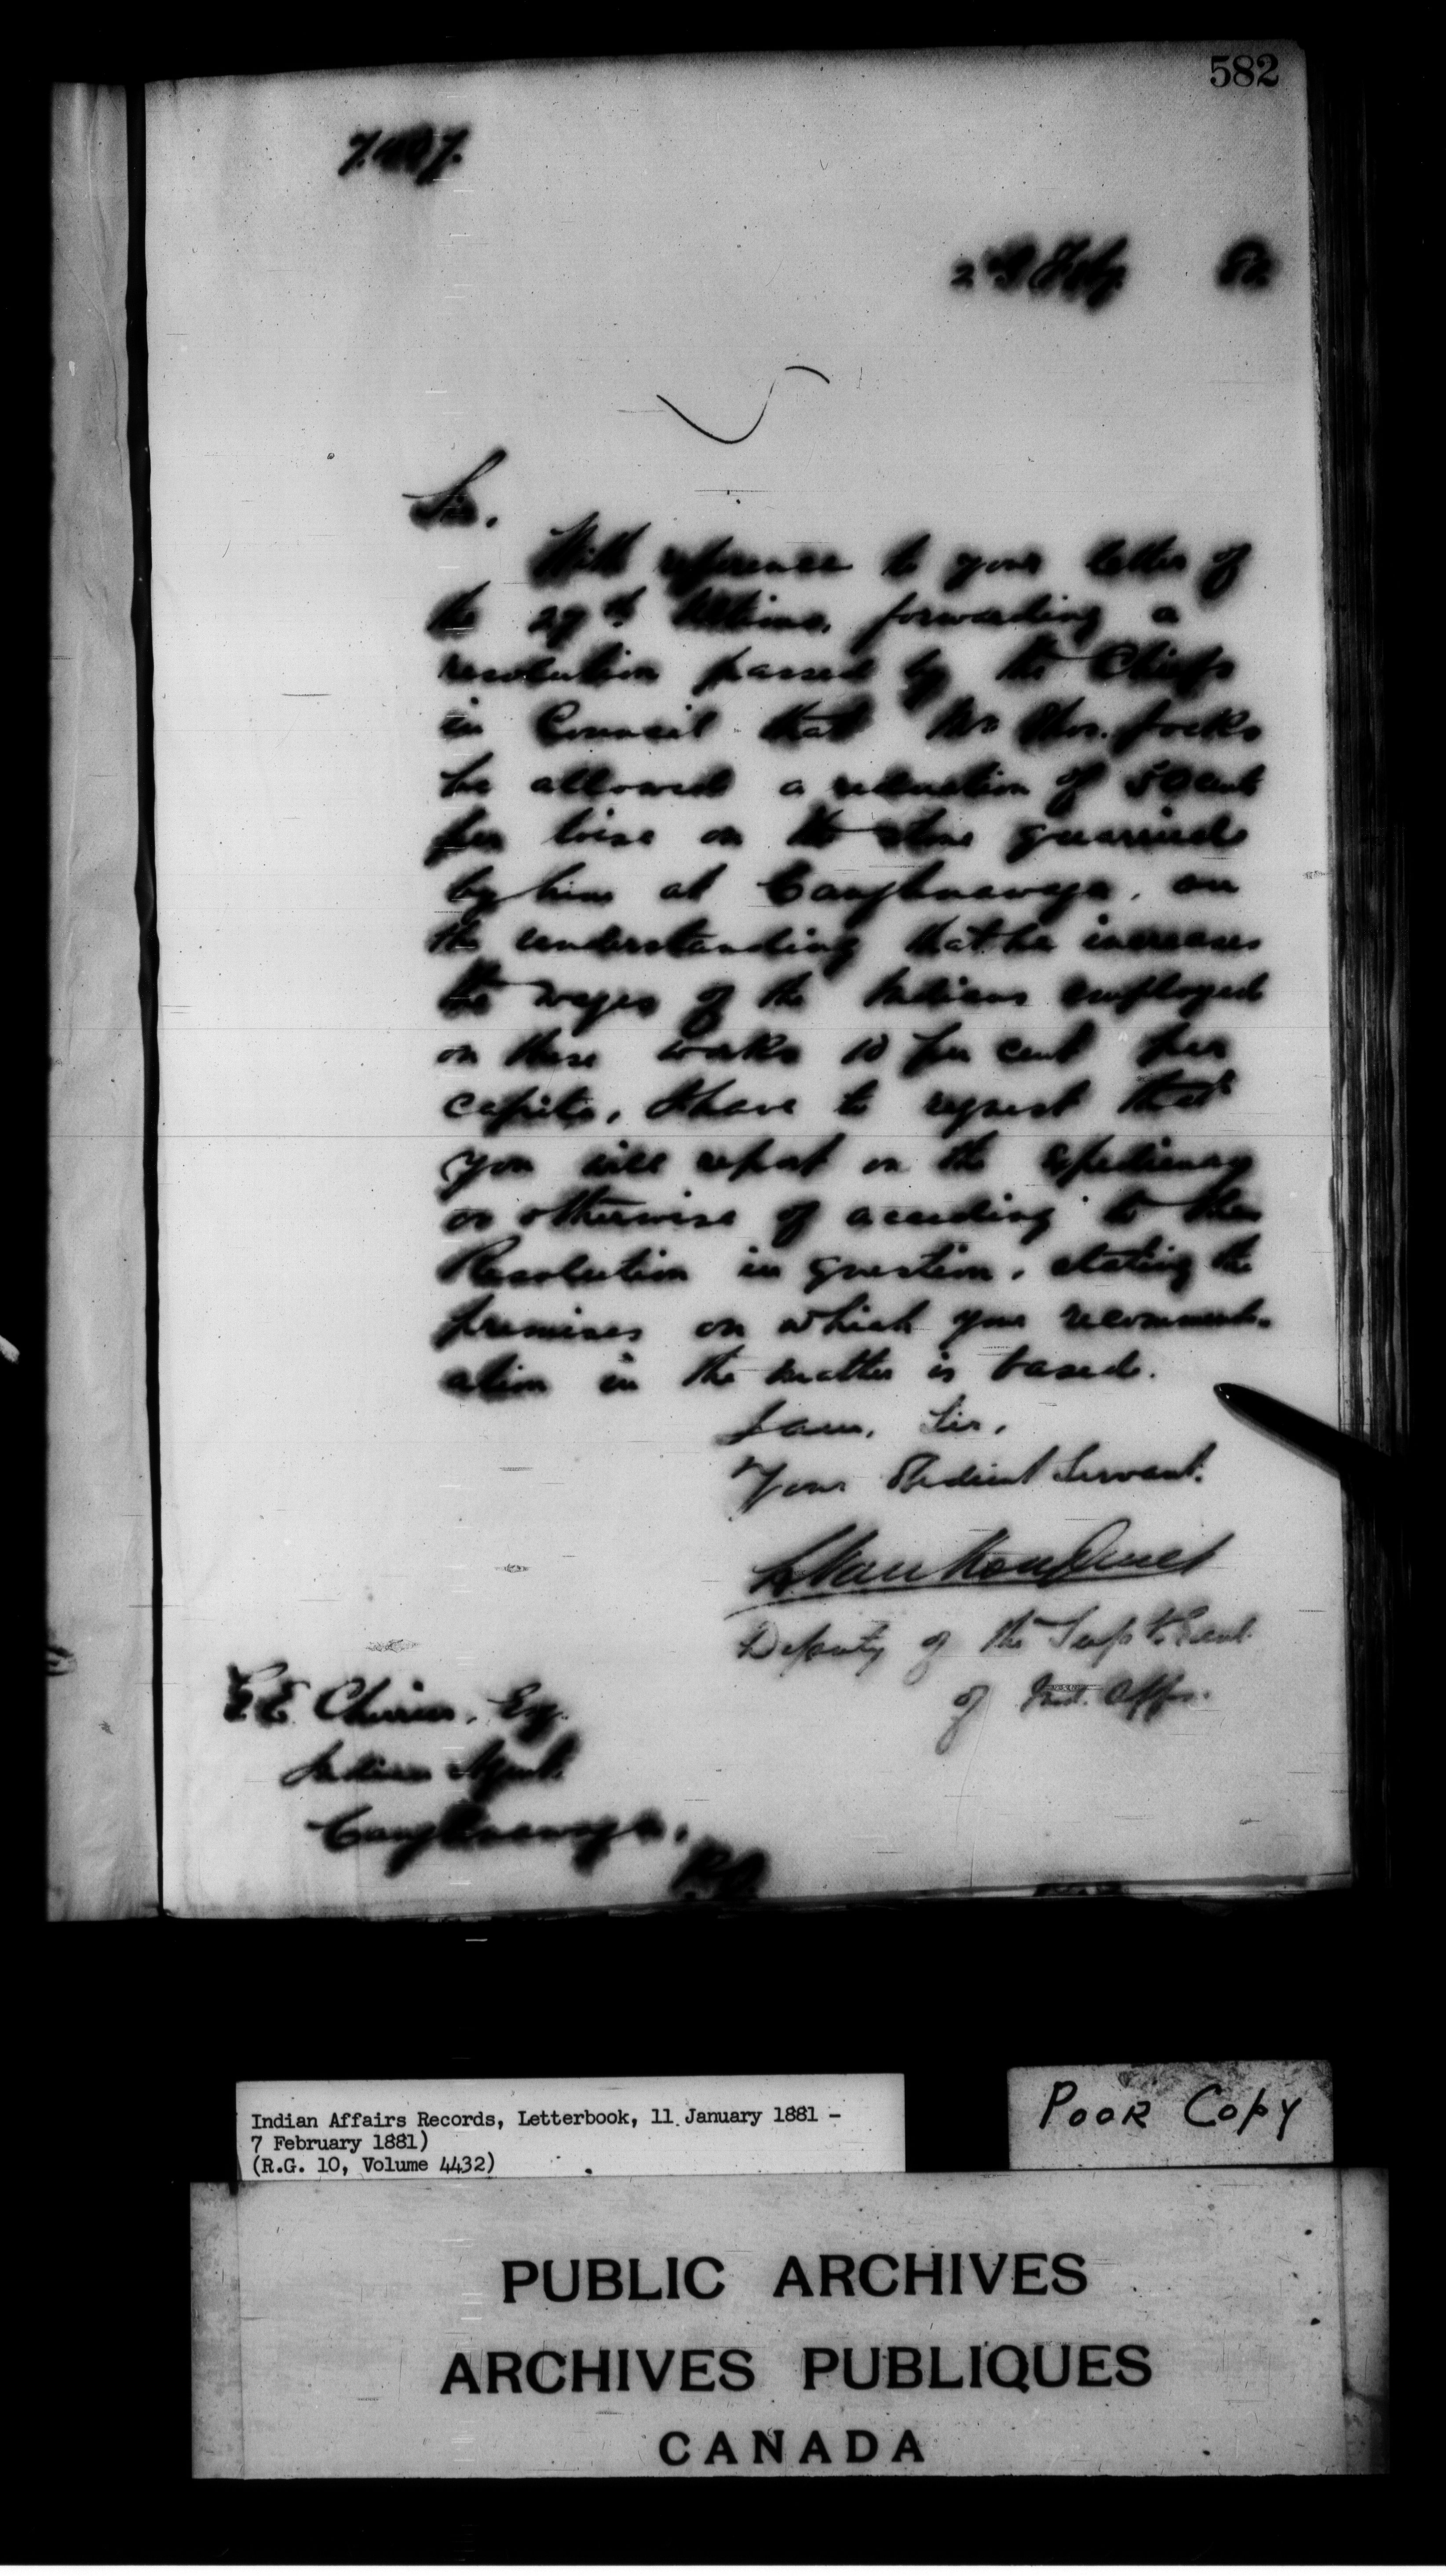 582
2nd Feby.
Sir,
With reference to your letter of
the 29th Ultimo, forwarding a
resolution passed by the Chiefs
in Council that Mr Thos. Jocks
be allowed a reduction of 50 cents
per toise on the stone quarried
by him at Caughnawaga, on
the understanding that he increases
the wages of the Indians employed
on these works 10 per cent per
capita, I have to request that
you will report on the expediency
or otherwise of acceding to the
Resolution in question, stating the
premises on which your recommend-
ation in the matter is based.
I am, Sir,
Your Obedient Servant.
L VanKoughnet
Deputy of the Supt. Genl.
of Ind. Affrs.
Cherrier, Esq.
Indian Agent.
Caughnawaga.
P.Q.
Indian Affairs Records, Letterbook, 11 January 1881 -
7 February 1881)
(R.G. 10, Volume 4432)
POOR COPY
PUBLIC ARCHIVES
ARCHIVES PUBLIQUES
CANADA